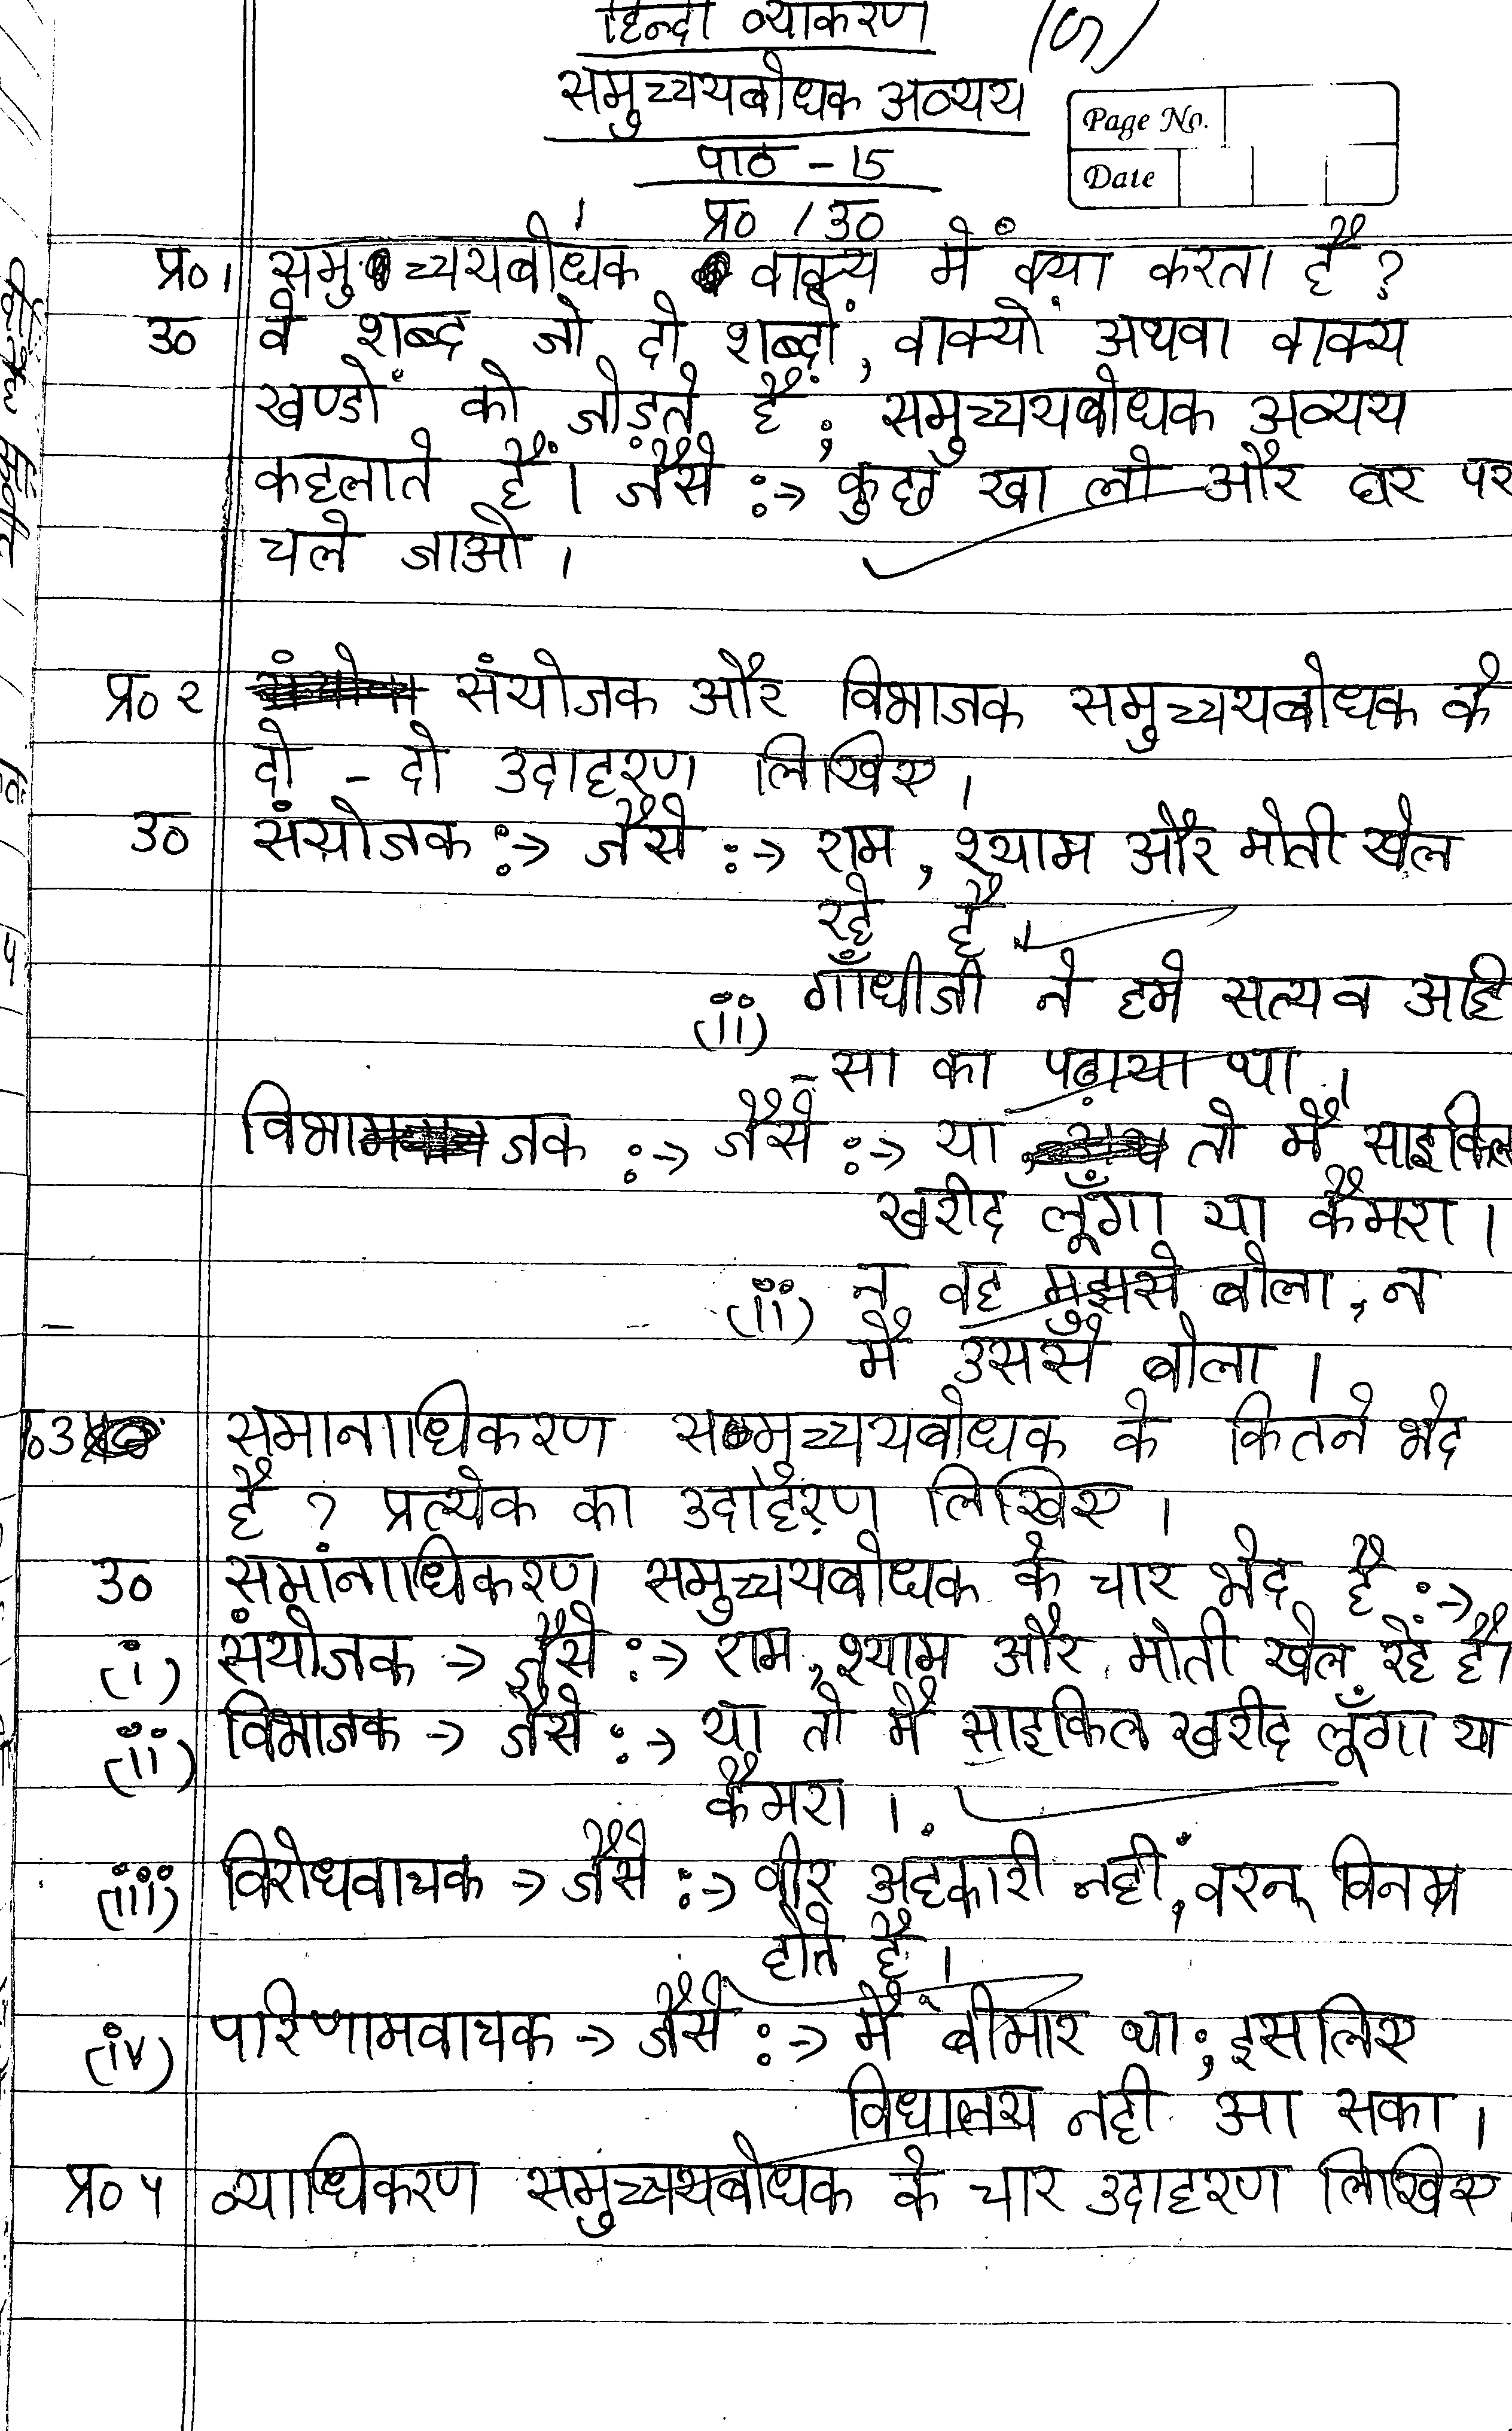 हिन्दी व्याकरण
समुच्चयबोधक अव्यय
Page No.
पाठ - 15
Date
प्र० / उ०
प्र० 1 समुच्चयबोधक वाक्य में क्या करता है ?
उ० वे शब्द जो दो शब्दों, वाक्यों अथवा वाक्य
खण्डों को जोड़ते हैं ; समुच्चयबोधक अव्यय
कहलाते हैं। जैसे :→ कुछ खा लो और घर पर
चले जाओ ।
प्र० २ संयोजक और विभाजक समुच्चयबोधक के
दो - दो उदाहरण लिखिए ।
उ० संयोजक :→ जैसे :→ राम, श्याम और मोती खेल
रहे है ।
(ii) गाँधीजी ने हमे सत्य व अहिं
- सा का पढ़ाया था ।
विभाजक :→ जैसे :→ या तो मैं साइकिल
खरीद लूँगा या कैमरा ।
(ii) न वह मुझसे बोला, न
मैं उससे बोला ।
०3 समानाधिकरण समुच्चयबोधक के कितने भेद
है ? प्रत्येक का उदाहरण लिखिए ।
उ० समानाधिकरण समुच्चयबोधक के चार भेद है :→
(i) संयोजक → जैसे :→ राम, श्याम और मोती खेल रहें है।
(ii) विभाजक → जैसे :→ या तो मैं साइकिल खरीद लूँगा या
कैमरा ।
(iii) विरोधवाचक → जैसे :→ वीर अहंकारी नहीं, वरन् विनम्र
होते है ।
(iv) परिणामवाचक → जैसे :→ मैं बीमार था ; इसलिए
विधालय नही आ सका ।
प्र० ५ व्याधिकरण समुच्चयबोधक के चार उदाहरण लिखिए